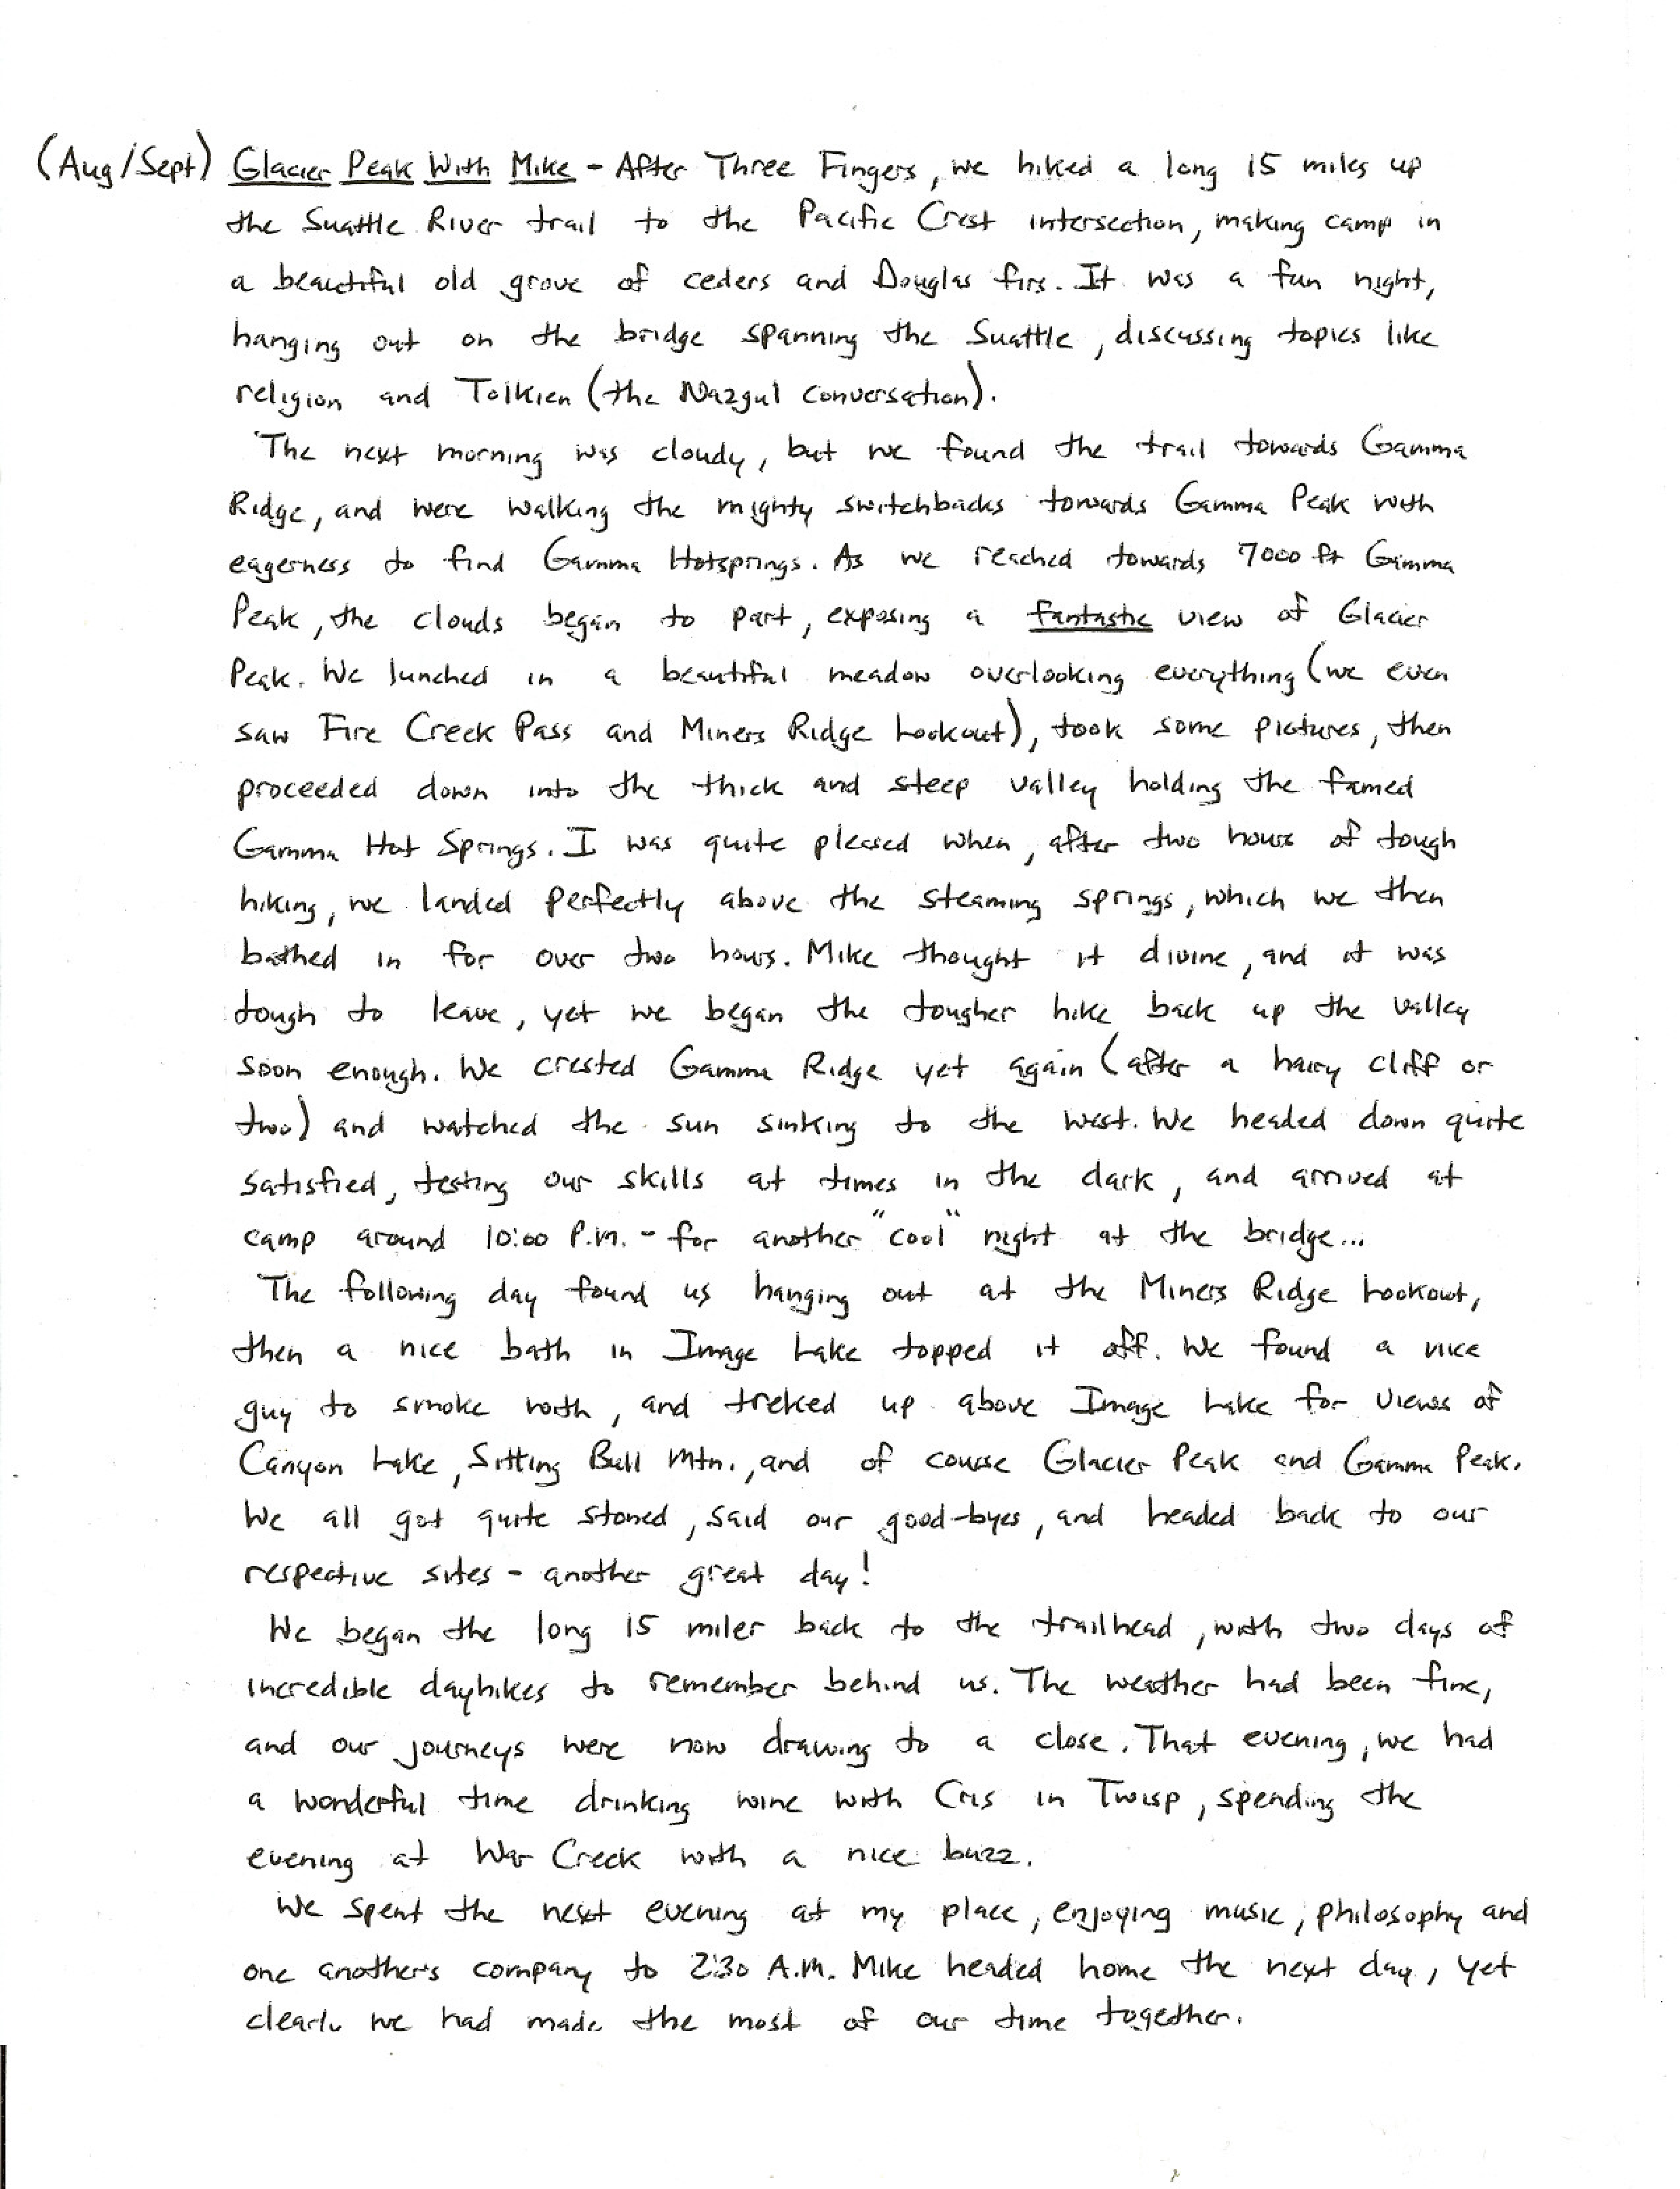 (Aug/Sept) Glacier Peak With Mike - After Three Fingers, we hiked a long 15 miles up
the Suattle River trail to the Pacific Crest intersection, making camp in
a beautiful old grove of ceders and Douglas firs. It was a fun night,
hanging out on the bridge spanning the Suattle, discussing topics like
religion and Tolkien (the Nazgul conversation).
The next morning was cloudy, but we found the trail towards Gamma
Ridge, and were walking the mighty switchbacks towards Gamma Peak with
eagerness to find Gamma Hotsprings. As we reached towards 7000 ft Gamma
Peak, the clouds began to part, exposing a fantastic view of Glacier
Peak. We lunched in a beautiful meadow overlooking everything (we even
saw Fire Creek Pass and Miners Ridge Lookout), took some pictures, then
proceeded down into the thick and steep valley holding the famed
Gamma Hot Springs. I was quite pleased when, after two hours of tough
hiking, we landed perfectly above the steaming springs, which we then
bathed in for over two hours. Mike thought it divine, and it was
tough to leave, yet we began the tougher hike back up the valley
soon enough. We crested Gamma Ridge yet again (after a hairy cliff or
two) and watched the sun sinking to the west. We headed down quite
satisfied, testing our skills at times in the dark, and arrived at
camp around 10:00 P.M. - for another "cool" night at the bridge...
The following day found us hanging out at the Miners Ridge Lookout,
then a nice bath in Image Lake topped it off. We found a nice
guy to smoke with, and treked up above Image Lake for views of
Canyon Lake, Sitting Bull Mtn., and of course Glacier Peak and Gamma Peak.
We all got quite stoned, said our good-byes, and headed back to our
respective sites - another great day!
We began the long 15 miler back to the trailhead, with two days of
incredible dayhikes to remember behind us. The weather had been fine,
and our journeys were now drawing to a close. That evening, we had
a wonderful time drinking wine with Cris in Twisp, spending the
evening at War Creek with a nice buzz.
We spent the next evening at my place, enjoying music, philosophy and
one another's company to 2:30 A.M. Mike headed home the next day, yet
clearly we had made the most of our time together.